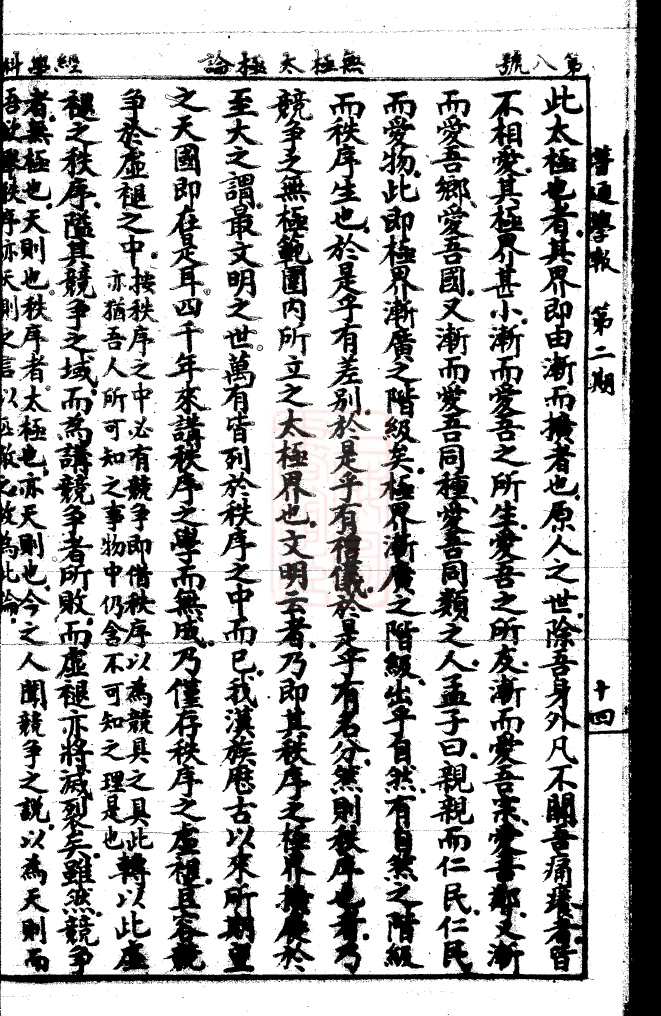 普通學報 第二期 十四
第八號
無極太極論
經學科
此太極也者其界即由漸而擴者也原人之世除吾身外凡不關吾痛癢者皆
不相愛其極界甚小漸而愛吾之所生愛吾之所友漸而愛吾宗愛吾鄰又漸
而愛吾鄉愛吾國又漸而愛吾同種愛吾同類之人孟子曰親親而仁民仁民
而愛物此即極界漸廣之階級矣極界漸廣之階級出乎自然有自然之階級
而秩序生也於是乎有差別於是乎有禮儀於是乎有名分然則秩序也者乃
競爭之無極範圍内所立之太極界也文明云者乃即其秩序之極界擴廣於
至大之謂最文明之世萬有皆列於秩序之中而已我漢族歷古以來所期望
之天國即在是耳四千年來講秩序之學而無成乃僅存秩序之虛襢且容競
爭於虛褪之中按秩序之中必有競爭即借秩序以為競具之具此
亦猶吾人所可知之事物中仍含不可知之理是也轉以此虛
褪之秩序隘其競爭之域而為講競爭者所敗而虛褪亦將滅裂矣雖然競爭
者無極也天則也秩序者太極也亦天則也今之人聞競爭之說以為天則而
秩序亦天則之言以
為此論